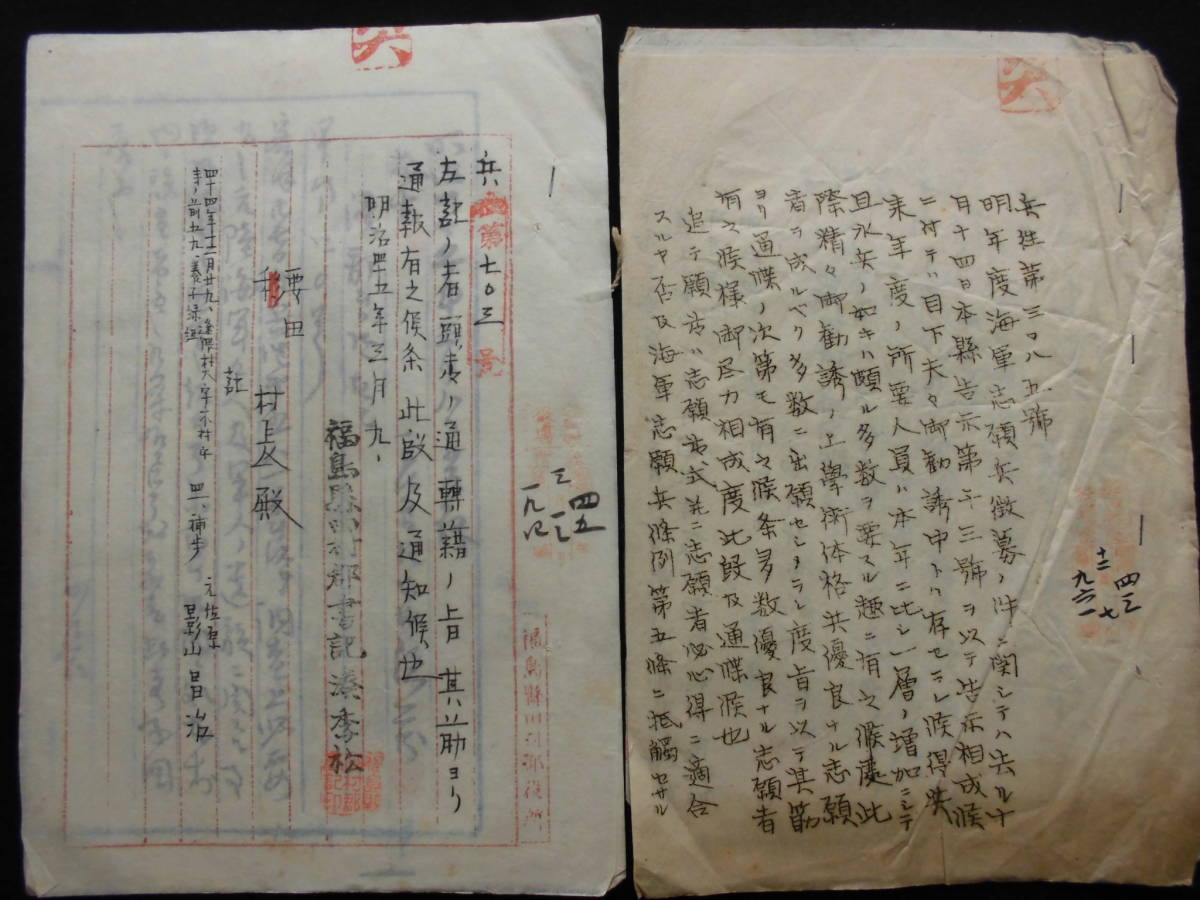 兵性第三〇八五號
明年度海軍志願兵徴募ノ件ニ関シテハ去ル十
月十四日本縣告示第 三號ヲ以テ告示相成候
ニ付テハ目下夫々御勧誘中トハ存セラレ候得共
来年度ノ所要人員ハ本年ニ比シ一層ノ増加ニシテ
且水兵ノ如キハ頗ル多数ヲ要スル趣ニ有之候處此
際精々御勧誘ノ上學術体格共優良ナル志願
者ヲ成ルベク多数ニ出願セシメラレ度旨ヲ以テ其筋
ヨリ通牒ノ次第モ有之候条多数優良ナル志願者
有之候様御尽力相成度此段及通牒候也
追テ願書ハ志願書式并ニ志願者必心得ニ適合
スルヤ否及海軍志願兵條例第五條ニ抵觸セサル
四三
十二 七
九六一
兵第七〇三号
左記ノ者頭書ノ通轉籍ノ旨其筋ヨリ
通報有之候条此段及通知候也
明治四五年三月九、
福島縣田村郡書記湊季松
村上 殿
記
四十四年十二月廿九、逢隈村大字下 四一、補歩 元佐原
影山昌治
四五
三
一九四
福島縣田村郡役所